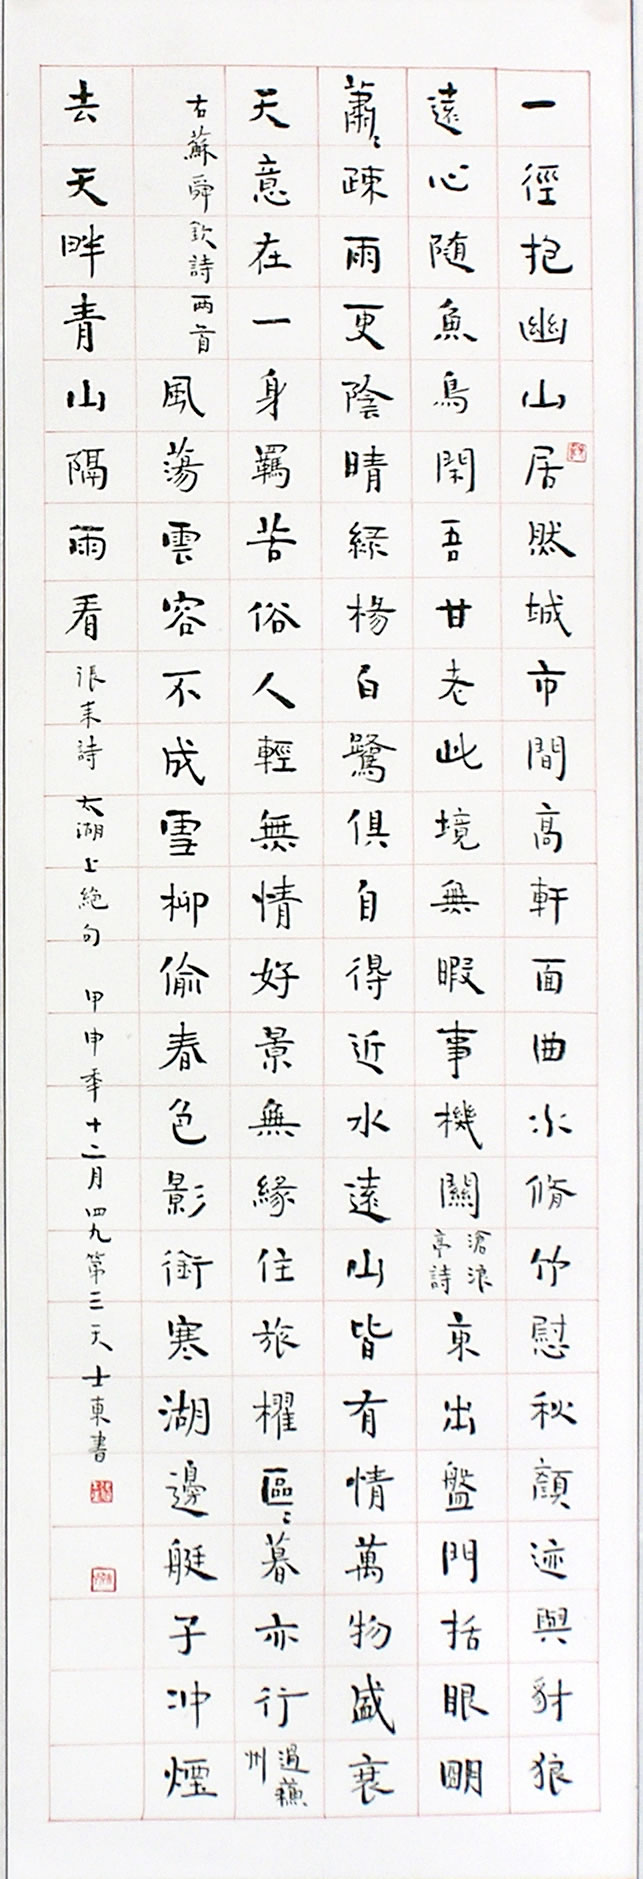 一徑抱幽山居然城市間高軒面曲水脩竹慰秋顔迹與豺狼
遠心随魚鳥閑吾甘老此境無暇事機關滄浪亭詩東出盤門括眼明
蕭〻疎雨更陰晴綠楊白鷺俱自得近水遠山皆有情萬物盛衰
天意在一身羈苦俗人輕無情好景無緣住旅櫂區〻暮亦行過蘇州
右蘇舜欽詩兩首風蕩雲容不成雪柳偷春色影銜寒湖邊艇子冲煙
去天畔青山隔雨看張耒詩太湖上絕句甲申秊十二月四九第三天士東書